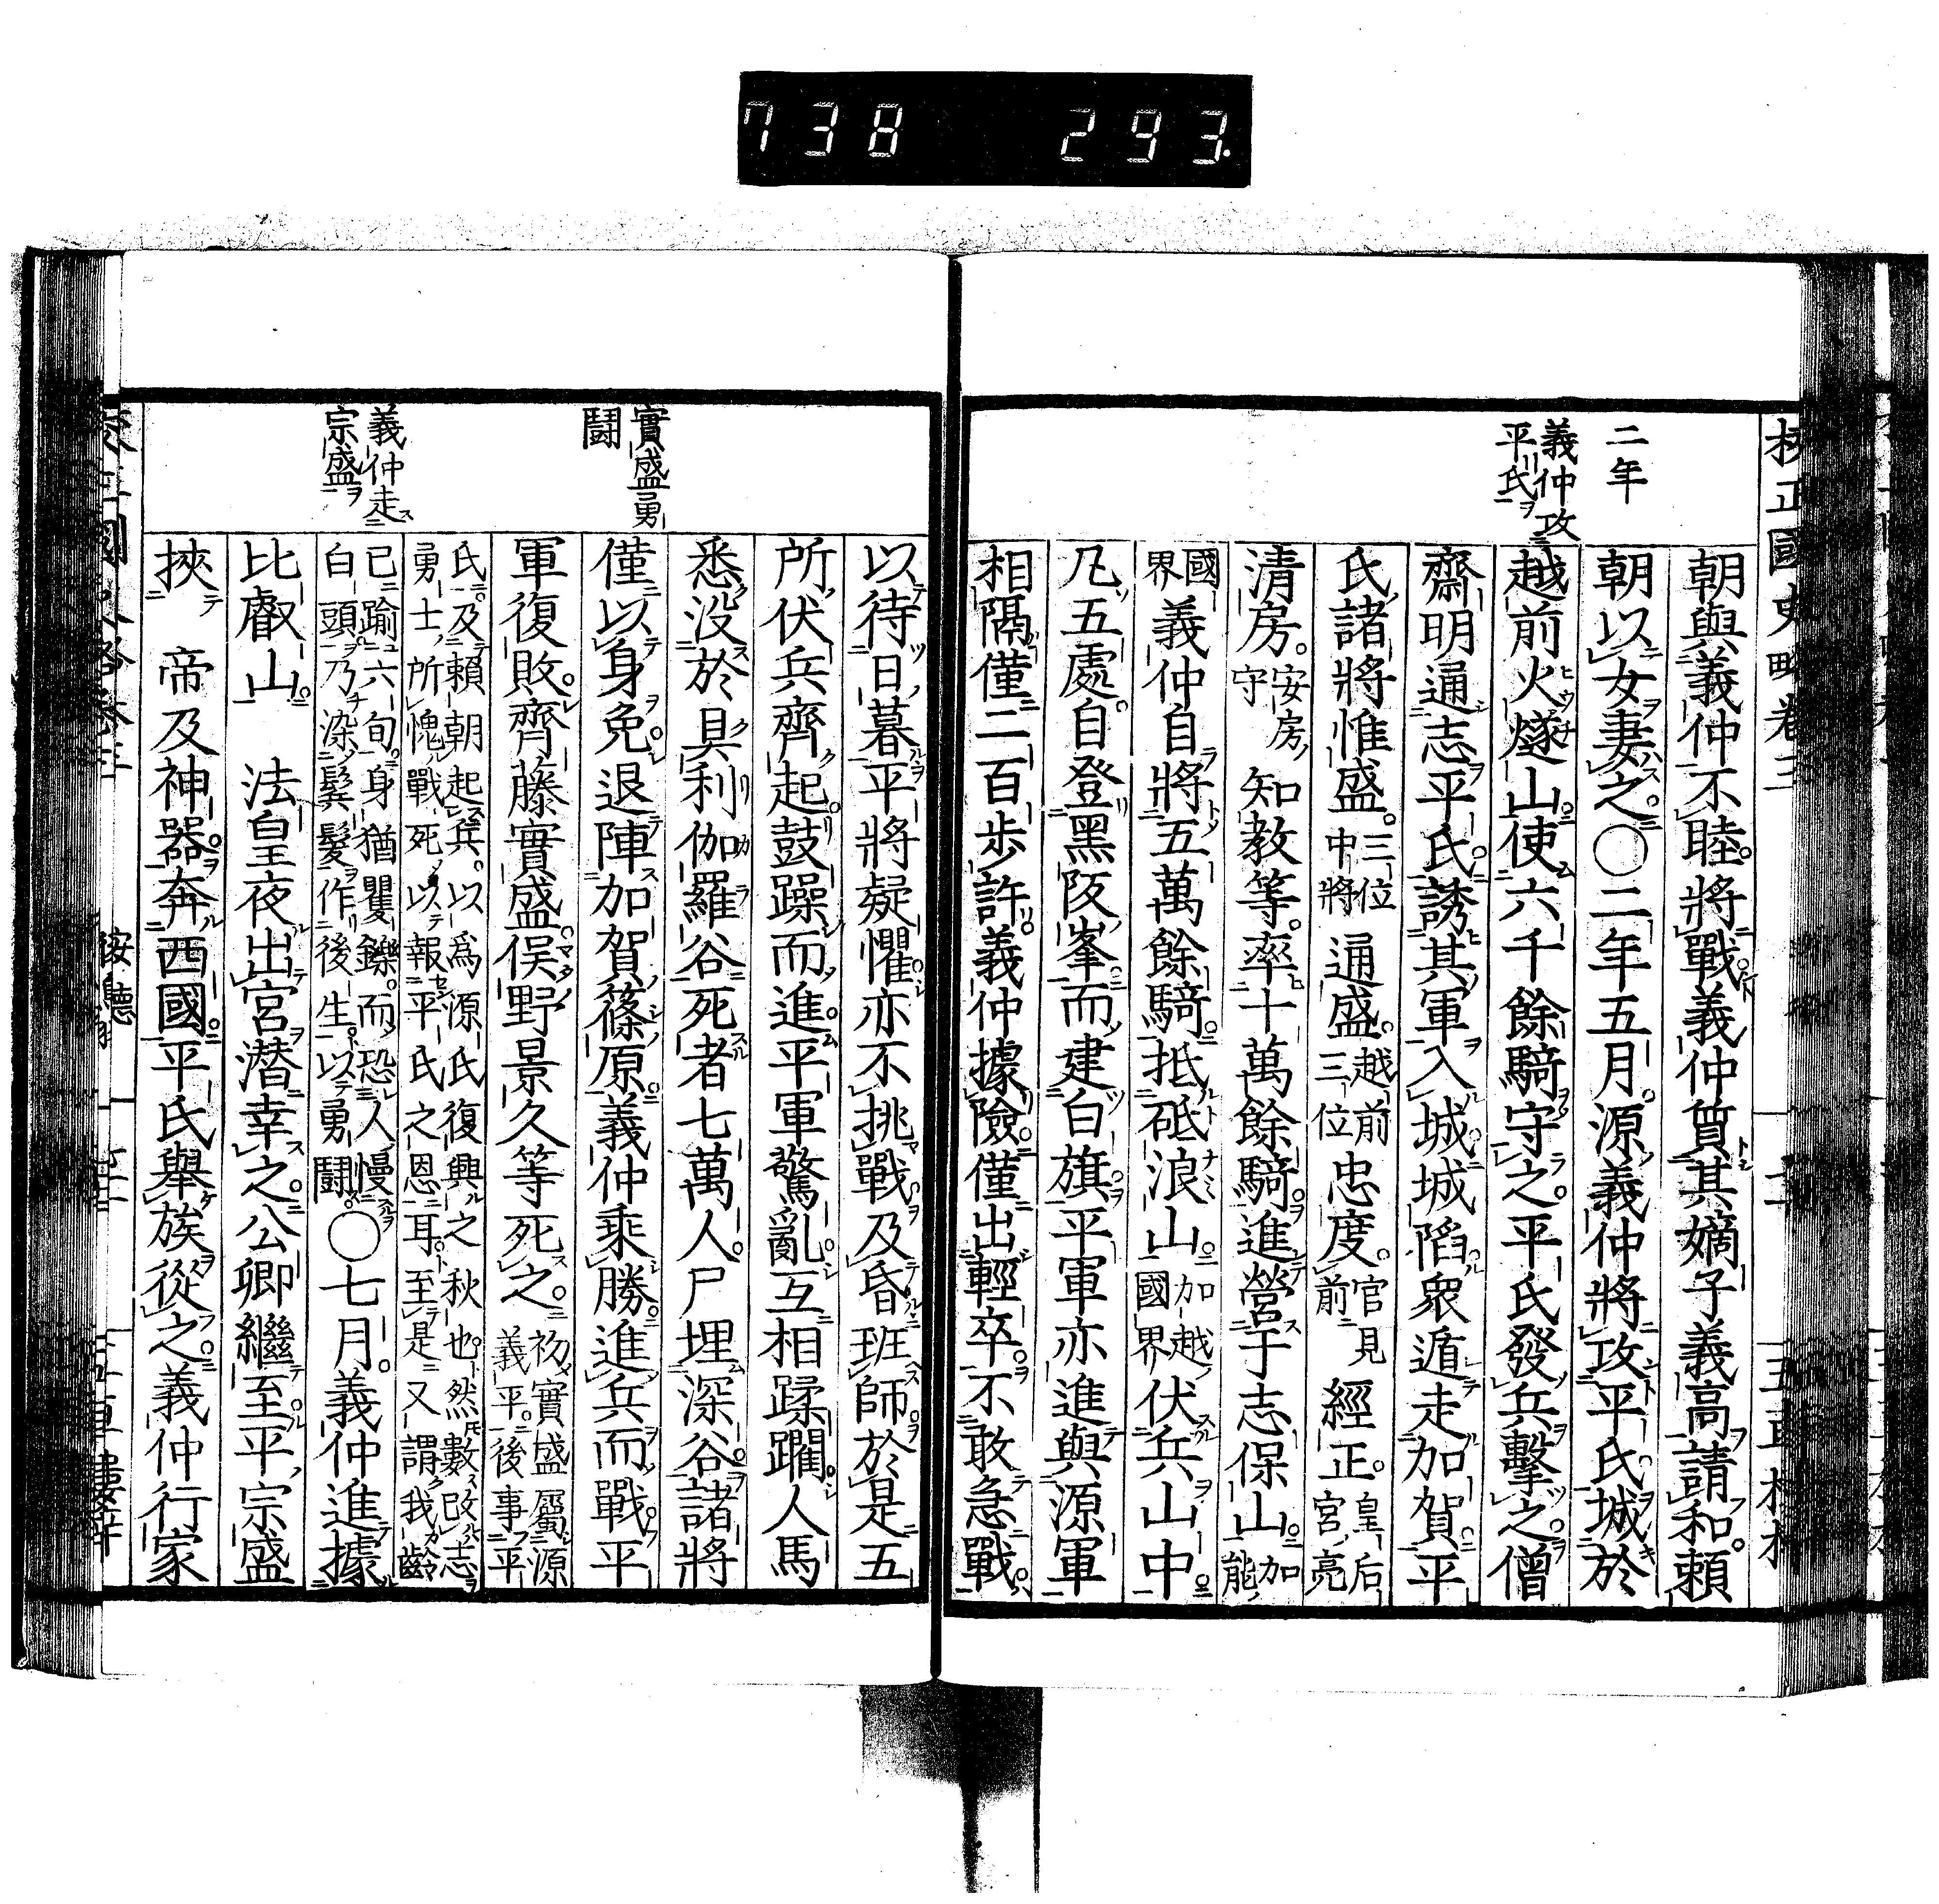 738 293.
校正國史略卷三
二年
義仲攻
平氏
朝與義仲不睦將戰義仲質其嫡子義高請和頼
朝以女妻之〇二年五月源義仲將攻平氏城於
越前火燧山使六千餘騎守之平氏發兵擊之僧
齋明通志平氏誘其軍入城城陷衆遁走加賀平
氏諸將惟盛三位中將通盛越前三位忠度官見前經正皇后宮亮
清房安房守知教等率十萬餘騎進營于志保山加能
國界義仲自將五萬餘騎抵砥浪山加越國界伏兵山中
凡五處自登黑阪峯而建白旗平軍亦進與源軍
相隔僅二百歩許義仲據險僅出輕卒不敢急戰
實盛勇
鬪
義仲走
宗盛
以待日暮平將疑懼亦不挑戰及昏班師於是五
所伏兵齊起鼓躁而進平軍驚亂互相蹂躙人馬
悉没於具利伽羅谷死者七萬人尸埋深谷諸將
僅以身免退陣加賀篠原義仲乘勝進兵而戰平
軍復敗齊藤實盛俣野景久等死之初實盛屬源義平後事平
氏及頼朝起兵以爲源氏復興之秋也然數改志勇士所愧戰死以報平氏之恩耳至是又謂我齡
已踰六旬身猶矍鑠而恐人慢白頭乃染鬓髮作後生以勇鬪〇七月義仲進據
比叡山 法皇夜出宮潛幸之公卿繼至平宗盛
挾 帝及神器奔西國平氏舉族從之義仲行家